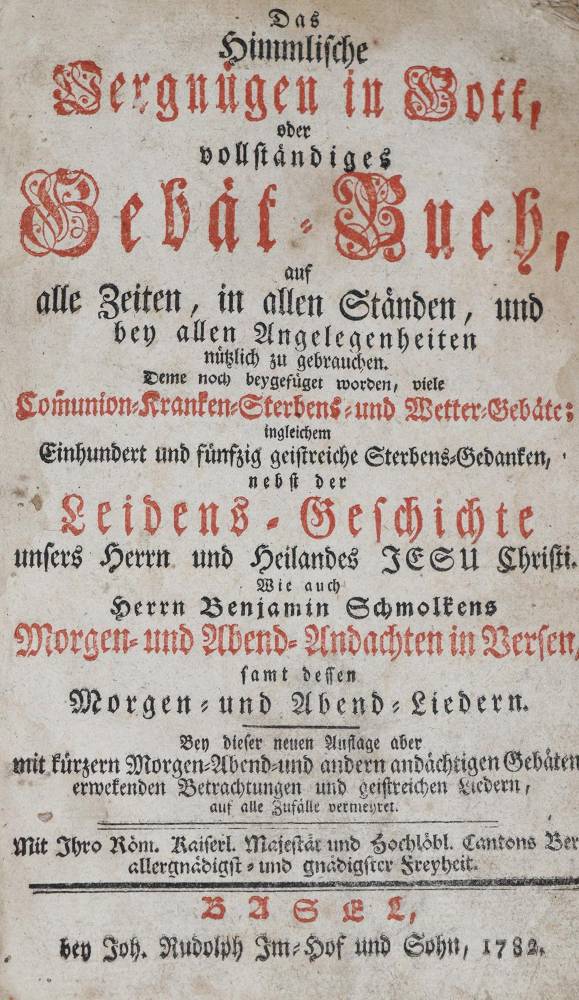 Das
Himmlische
Vergnügen in Gott,
oder
vollständiges
Gebät-Buch,
auf
alle Zeiten, in allen Ständen, und
bey allen Angelegenheiten
nützlich zu gebrauchen.
Deme noch beygefüget worden, viele
Com̄union-Kranken-Sterbens-und Wetter-Gebäte;
ingleichem
Einhundert und fünfzig geistreiche Sterbens-Gedanken,
nebst der
Leidens-Geschichte
unsers Herrn und Heilandes JESU Christi.
Wie auch
Herrn Benjamin Schmolkens
Morgen- und Abend-Andachten in Versen,
samt dessen
Morgen-und Abend-Liedern.
Bey dieser neuen Auflage aber
mit kürzern Morgen-Abend-und andern andächtigen Gebäten
erwekenden Betrachtungen und geistreichen Liedern,
auf alle Zufälle vermehret.
Mit Ihro Röm. Kaiserl. Majestät und Hochlöbl. Cantons Ber
allergnädigst-und gnädigster Freyheit.
BASEL,
bey Joh. Rudolph Im-Hof und Sohn, 1782.